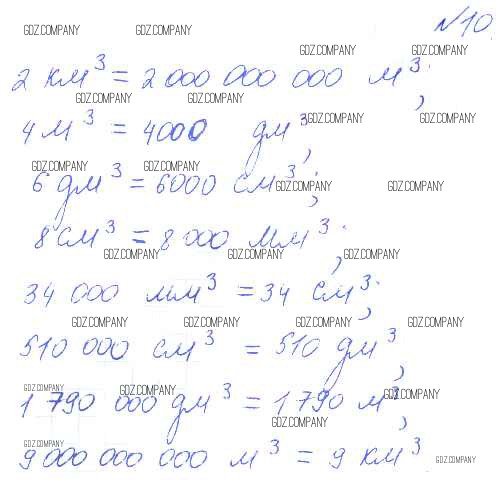 №10.
GDZ.COMPANY GDZ.COMPANY
GDZ.COMPANY GDZ.COMPANY
2 км³ = 2 000 000 000 м³;
GDZ.COMPANY GDZ.COMPANY
4 м³ = 4000 дм³;
GDZ.COMPANY GDZ.COMPANY
GDZ.COMPANY GDZ.COMPANY
6 дм³ = 6000 см³;
GDZ.COMPANY GDZ.COMPANY
8 см³ = 8 000 мм³;
GDZ.COMPANY GDZ.COMPANY GDZ.COMPANY
34 000 мм³ = 34 см³;
GDZ.COMPANY GDZ.COMPANY GDZ.COMPANY GDZ.COMPANY
510 000 см³ = 510 дм³;
GDZ.COMPANY GDZ.COMPANY GDZ.COMPANY
1 790 000 дм³ = 1 790 м³;
GDZ.COMPANY
GDZ.COMPANY
9 000 000 000 м³ = 9 км³
GDZ.COMPANY